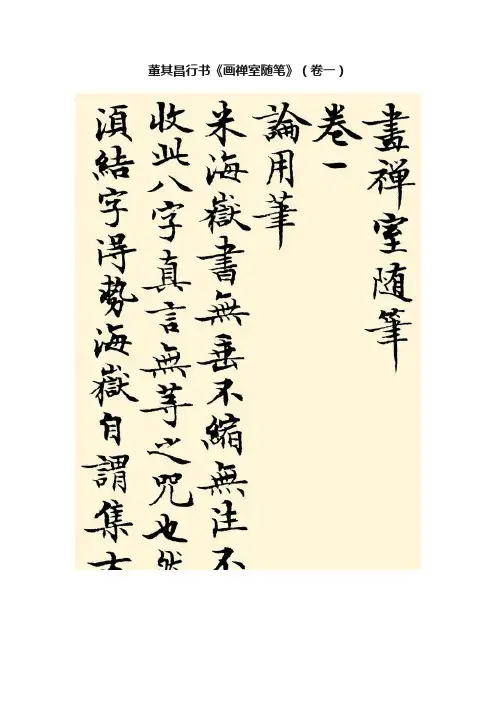 董其昌行书《画禅室随笔》（卷一）
畫禅室随筆
卷一
論用筆
米海嶽書無垂不縮無往不
收此八字真言無等之咒也然
須結字得勢海嶽自謂集古